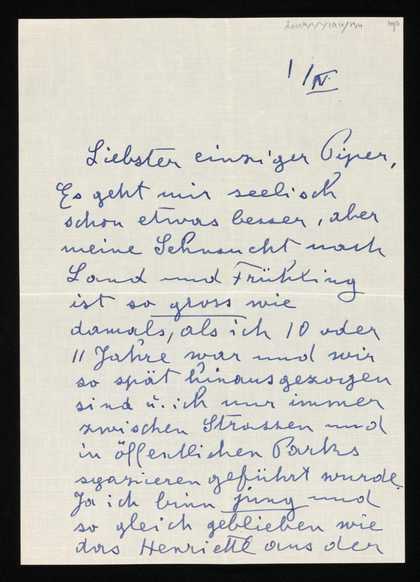 1/IV.
Liebster einziger Piper,
Es geht mir seelisch
schon etwas besser, aber
meine Sehnsucht nach
Land und Frühling
ist so gross wie
damals, als ich 10 oder
11 Jahre war und wir
so spät hinausgezogen
sind u. ich nur immer
zwischen Strassen und
in öffentlichen Parks
spazieren geführt wurde.
Ja ich binn jung und
so gleich geblieben wie
das Henriettl aus der